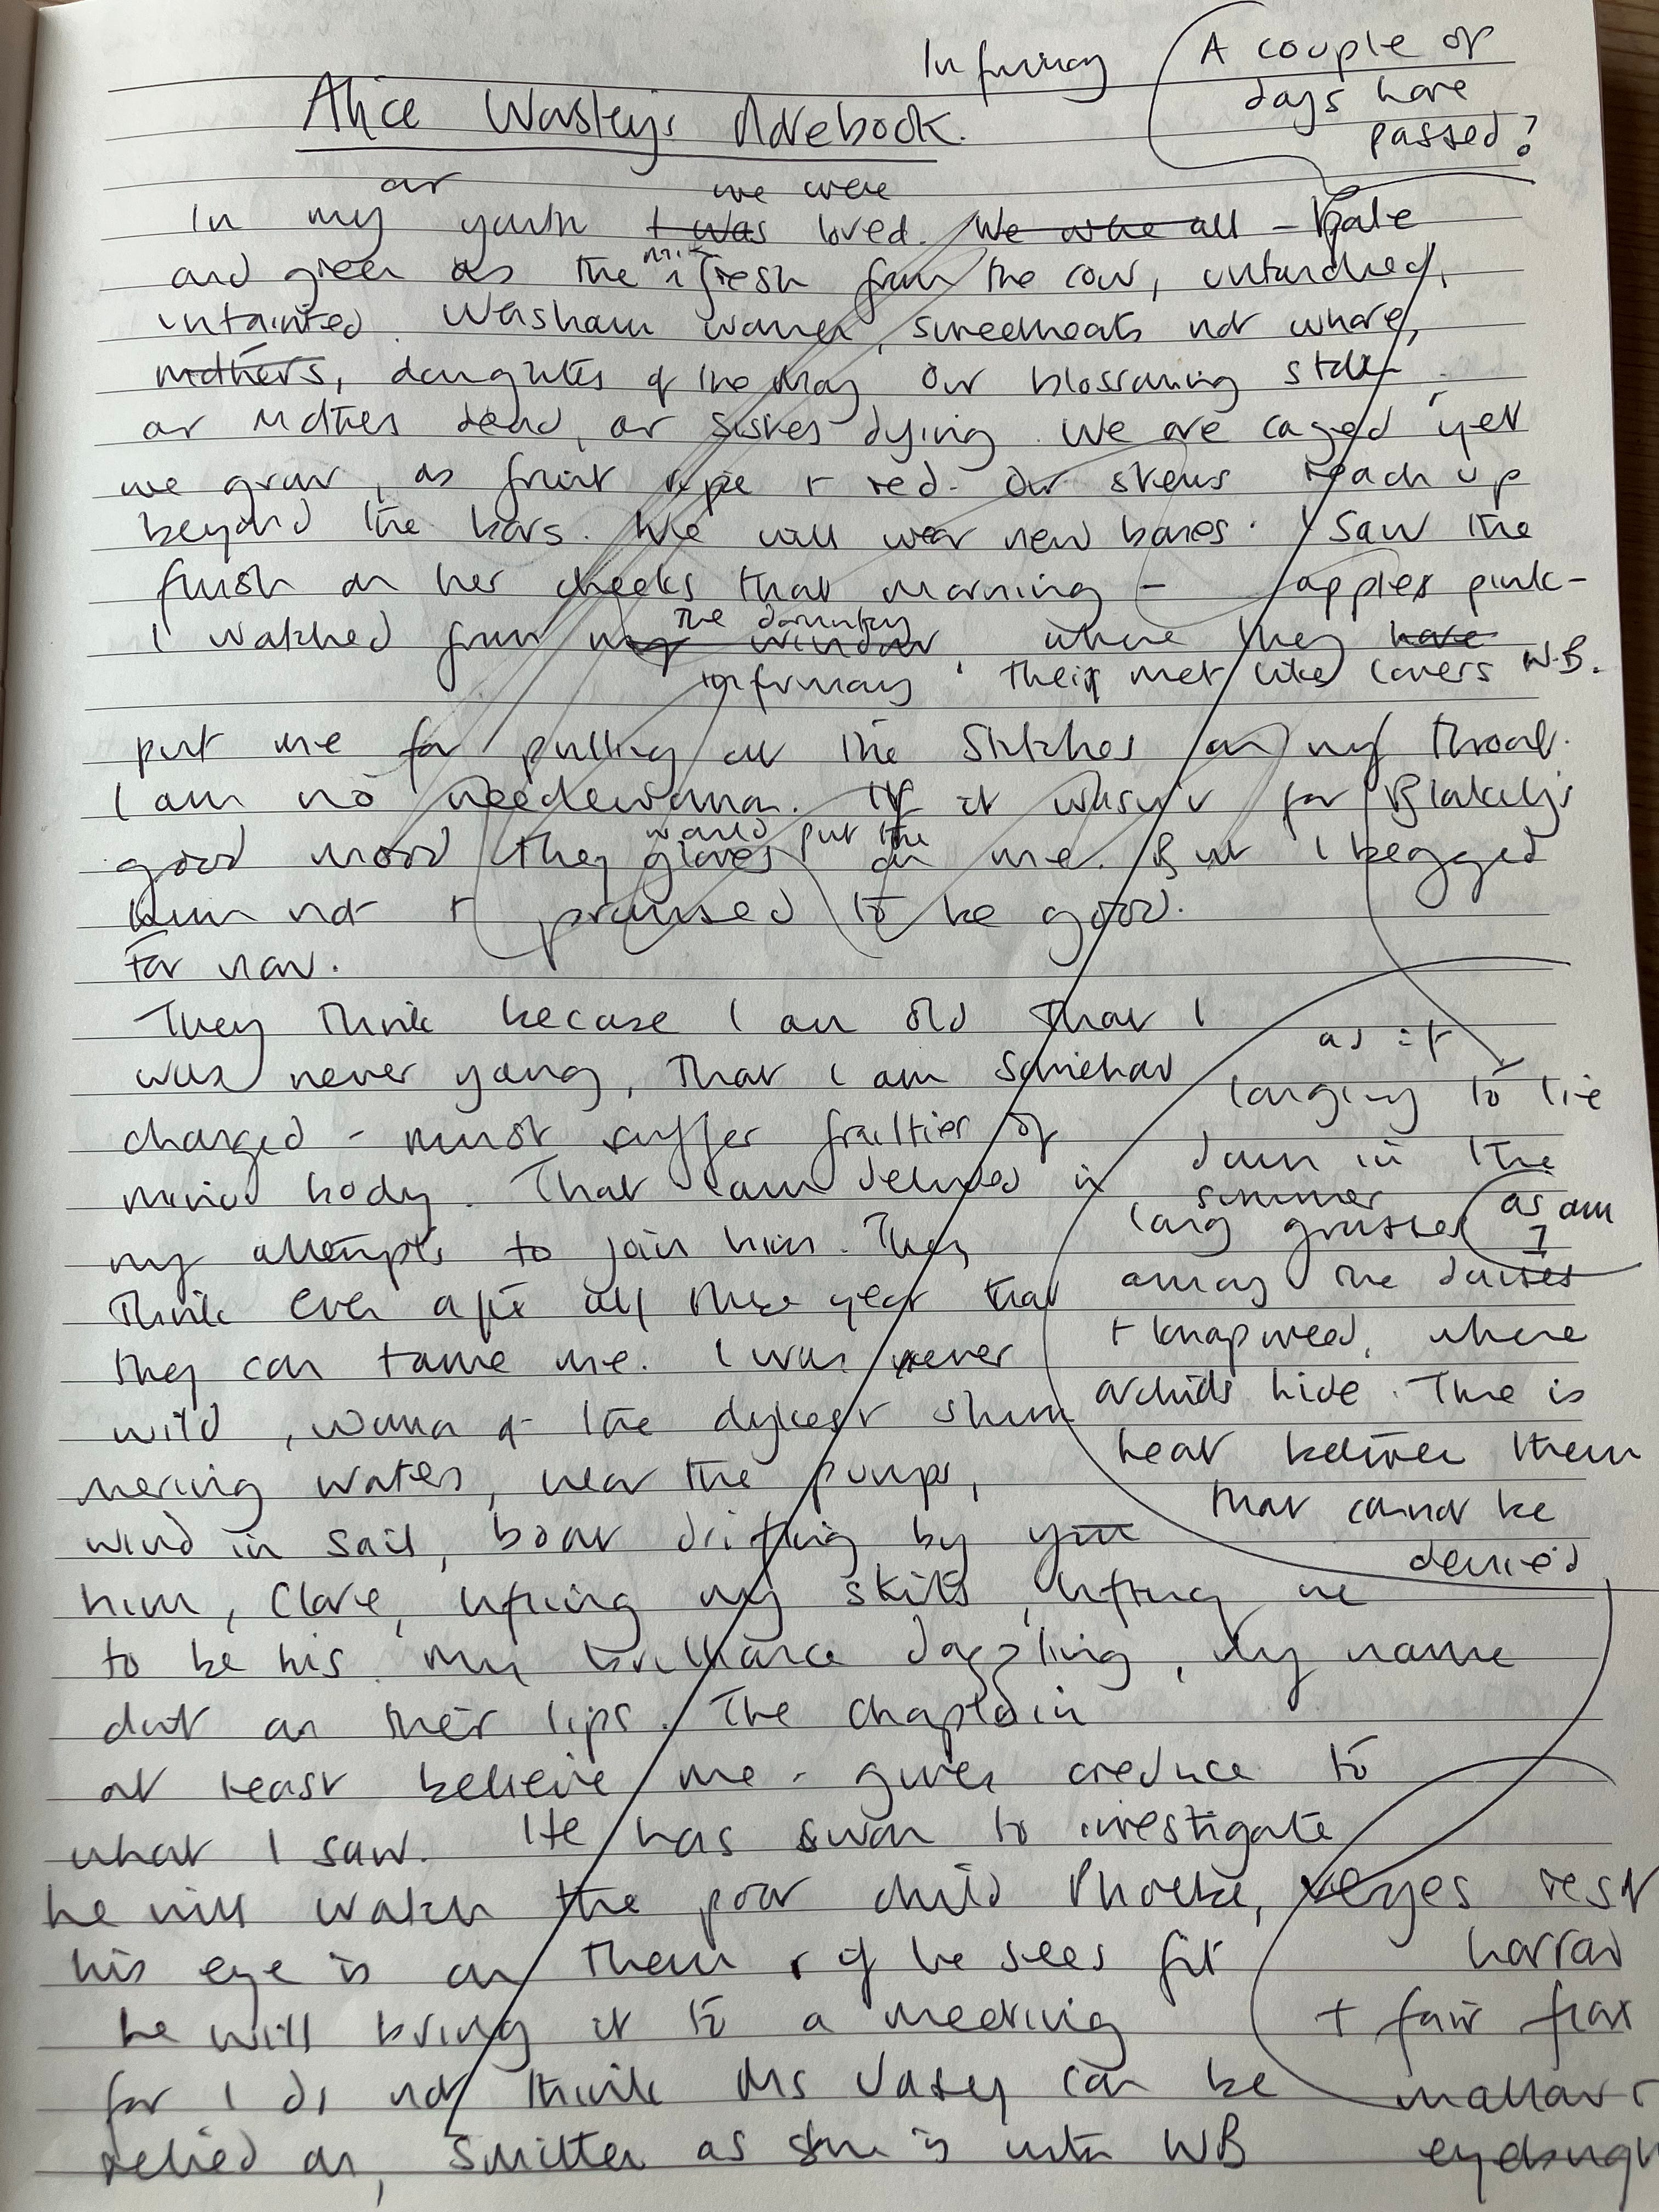 Infirmary
A couple of
days have
passed?
Alice Wasley's Notebook.
our we were
In my youth I was loved. We who all - Pale
and green as the milk fresh from the cow, untouched,
untainted. Washam women, sweethearts not whore,
mothers, daughters of the May Our blossoming stolen.
our Mothers dead, our sisters dying. We are caged yet
we grow, as fruit ripe + red. Our stems reach up
beyond the bars. We will wear new bones. I saw the
flush on her cheeks that morning - apples pink -
the dormitory
I watched from my window, where they have
infirmary. They met like lovers W.B.
put me for pulling out the stitches on my throat.
I am no needlewoman. If it wasn't for Blakely's
would put the
good mood they gloves on me. But I begged
him not + promised to be good.
For now.
They think because I am old that I
was never young, that I am somehow
changed - must suffer frailties of
mind body. That I am deluded in
my attempts to join him. They
think even after all these years that
they can tame me. I was ever
wild, woman of the dykes shim
mering waters, near the pumps,
wind in sail, boat drifting by
him, Clare, lifting my skirts, lifting me
to be his. My brilliance dazzling, my name
on their lips. The chaplain
at least believe me - gives credence to
what I saw. He has sworn to investigate
he will watch the poor child Phoebe,
his eye is on them + if he sees fit
he will bring it to a meeting
for I do not think Mrs Vasey can be
relied on, smitten as she is with WB
as if
longing to lie
down in the
summer
long grasses as am
I
among the daisies
+ knapweed, where
orchids hide. There is
heat between them
that cannot be
denied
eyes rest
+ fair flax
mallow +